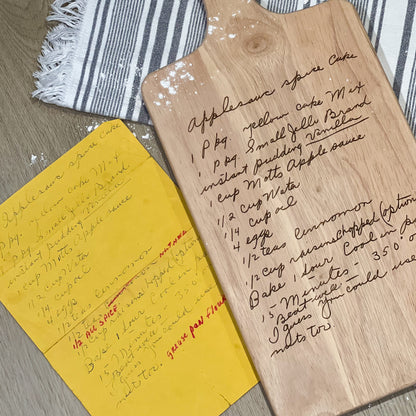 Applesauce spice cake
1 Pkg yellow cake Mix
1 Pkg Small Jello Brand
instant pudding Vanilla
1 cup Motts Applesauce
1/2 cup Wata
1/4 cup oil
4 eggs
1/2 teas cinnamon
1/2 cup raisins chopped (option
Bake 1 hour Cool in pan
15 Minutes - 350° o
Beat well -
I guess you could use
nuts too.
Applesauce spice cake
1 Pkg yellow cake Mix
1 Pkg Small Jello Brand
instant pudding Vanilla
1 cup Motts Apple sauce
1/2 cup Wata
1/4 cup oil
4 eggs
1/2 teas cinnamon
1/2 ALL SPICE NUTMEG
1/2 cup raisins chopped (option
Bake 1 hour Cool in
15 Minutes - 350
grease pan flour
Beat well
I guess you could use
nuts too.